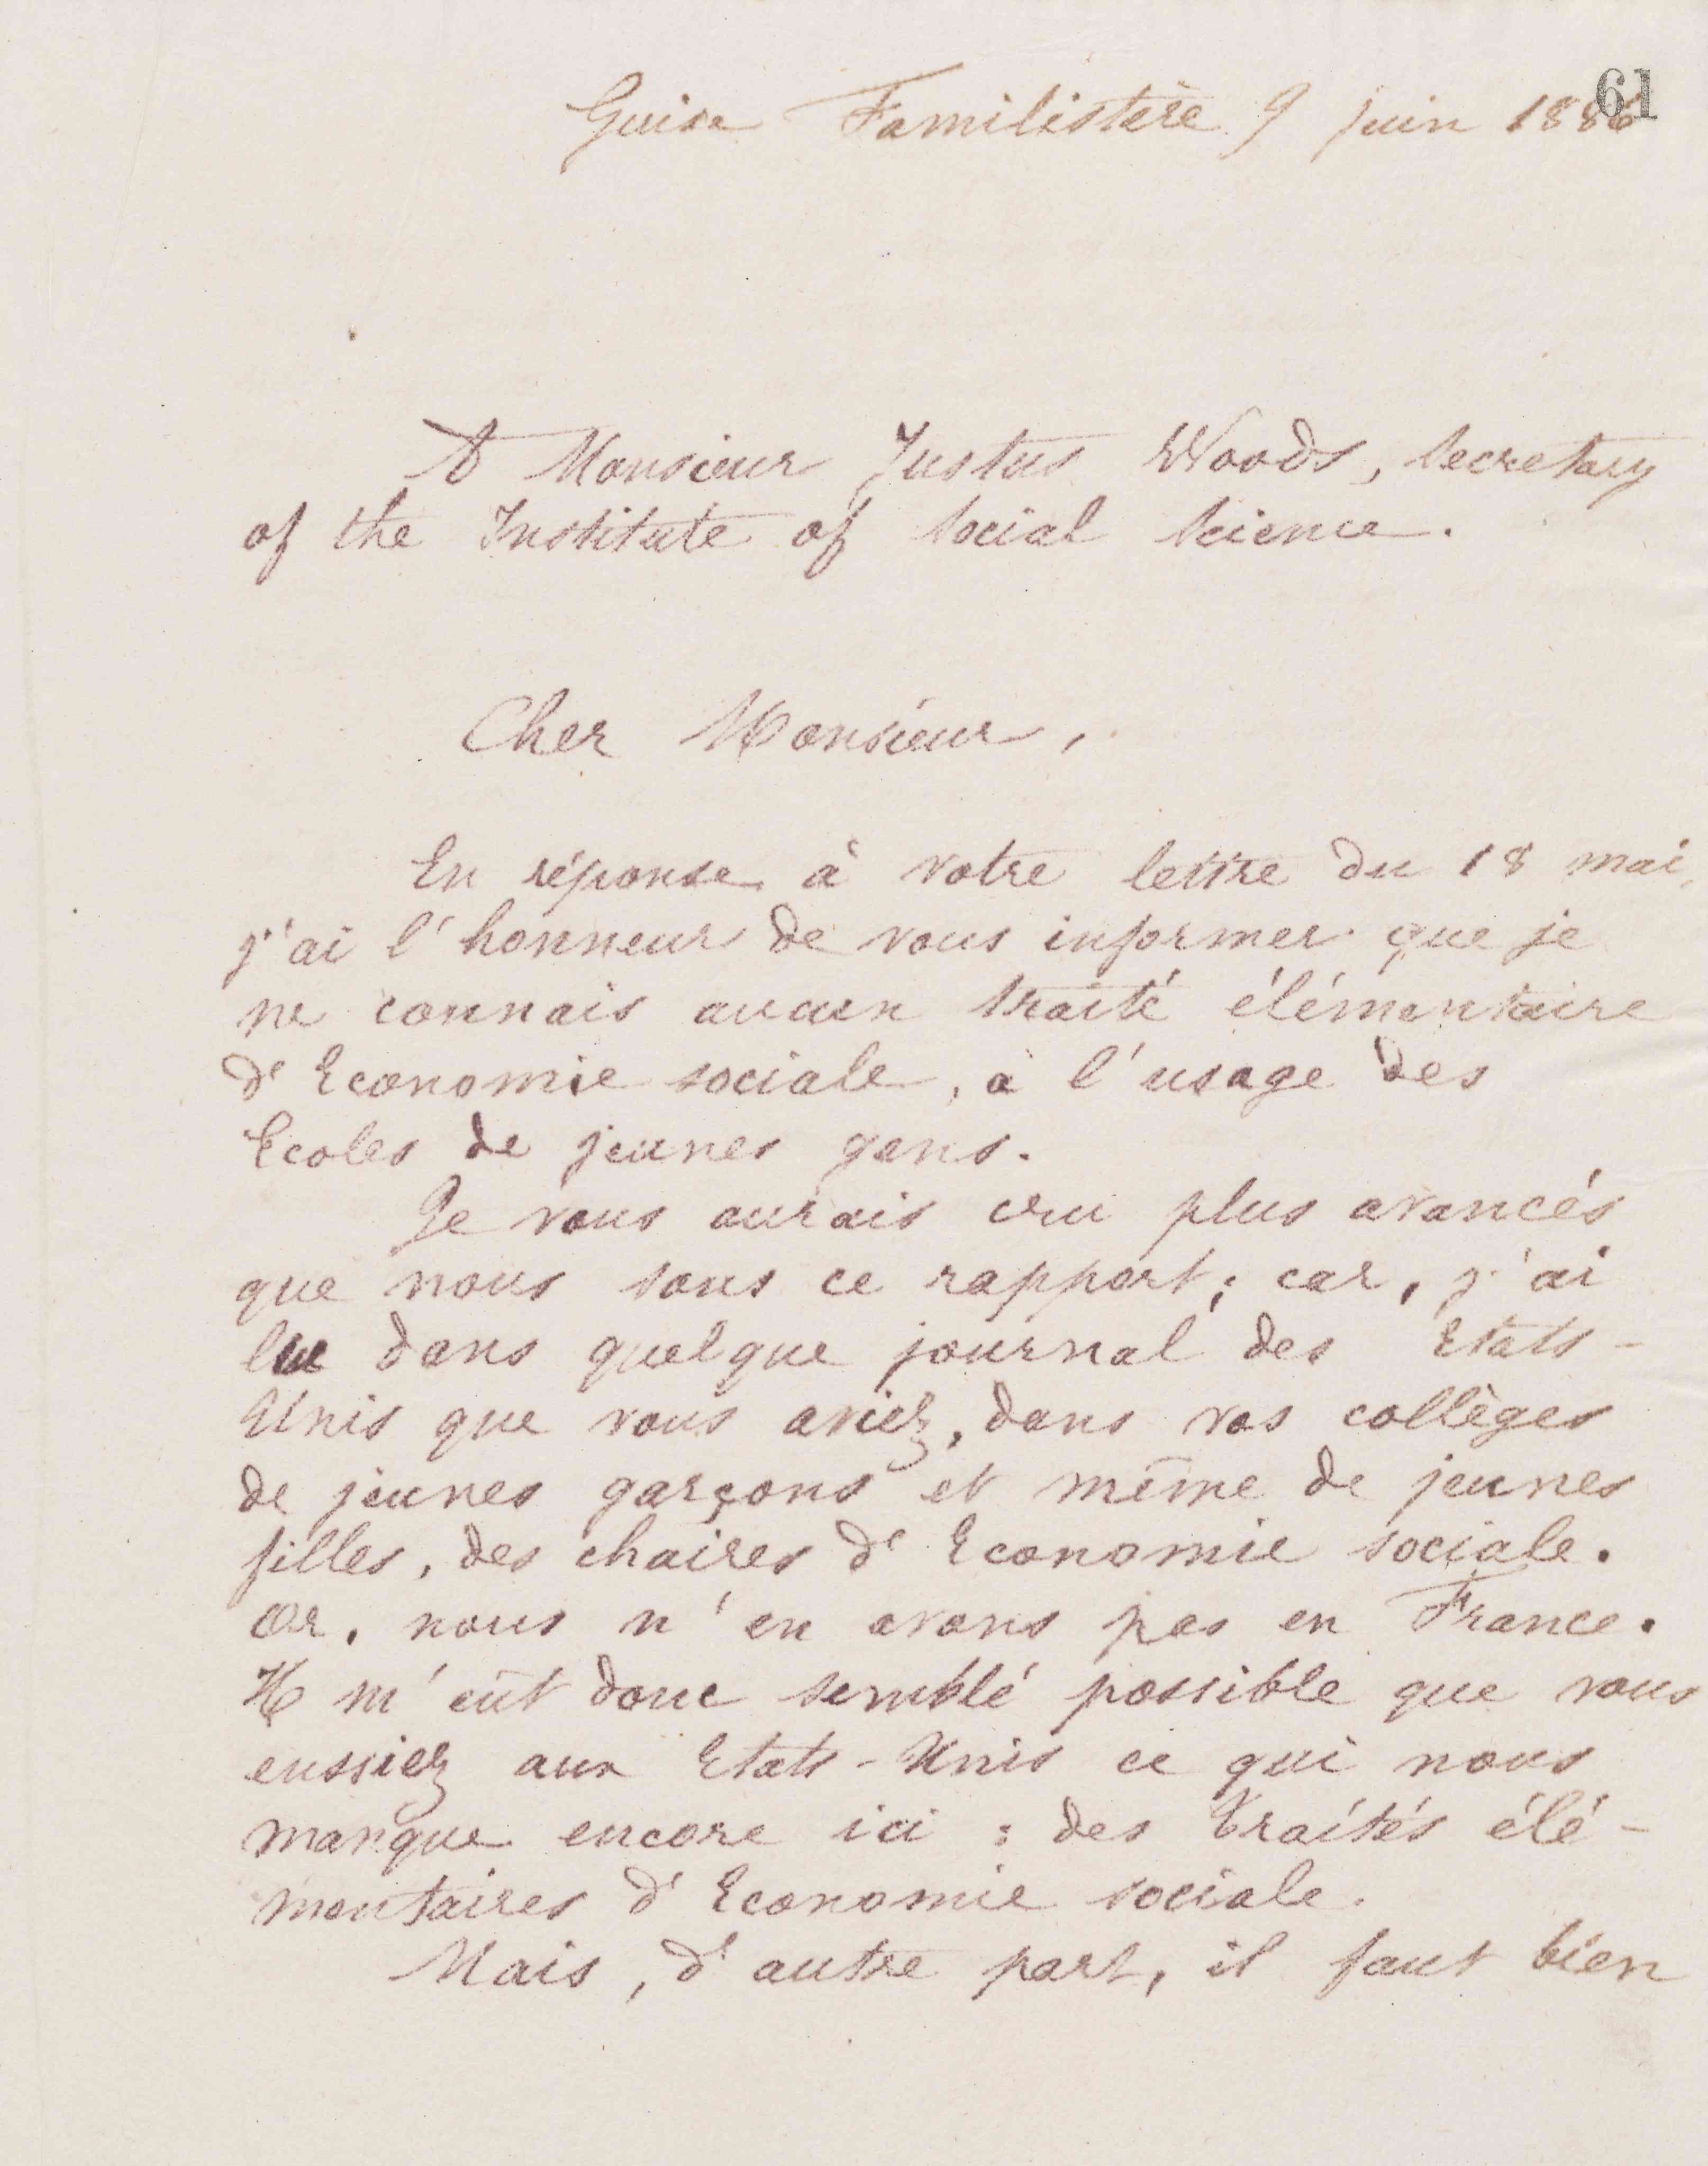 61
Guise Familistère 9 juin 1886
A Monsieur Justus Woods, Secretary
of the Institute of Social Science.
Cher Monsieur,
En réponse à votre lettre du 18 mai,
j'ai l'honneur de vous informer que je
ne connais aucun traité élémentaire
d'Economie sociale, à l'usage des
Ecoles de jeunes gens.
Je vous aurais cru plus avancés
que nous sous ce rapport; car, j'ai
lu dans quelque journal des Etats-
Unis que vous aviez, dans vos collèges
de jeunes garçons et même de jeunes
filles, des chaires d'Economie sociale.
Or, nous n'en avons pas en France.
Il m'eût donc semblé possible que vous
eussiez aux Etats-Unis ce qui nous
manque encore ici : des Traités élé-
mentaires d'Economie sociale.
Mais, d'autre part, il faut bien